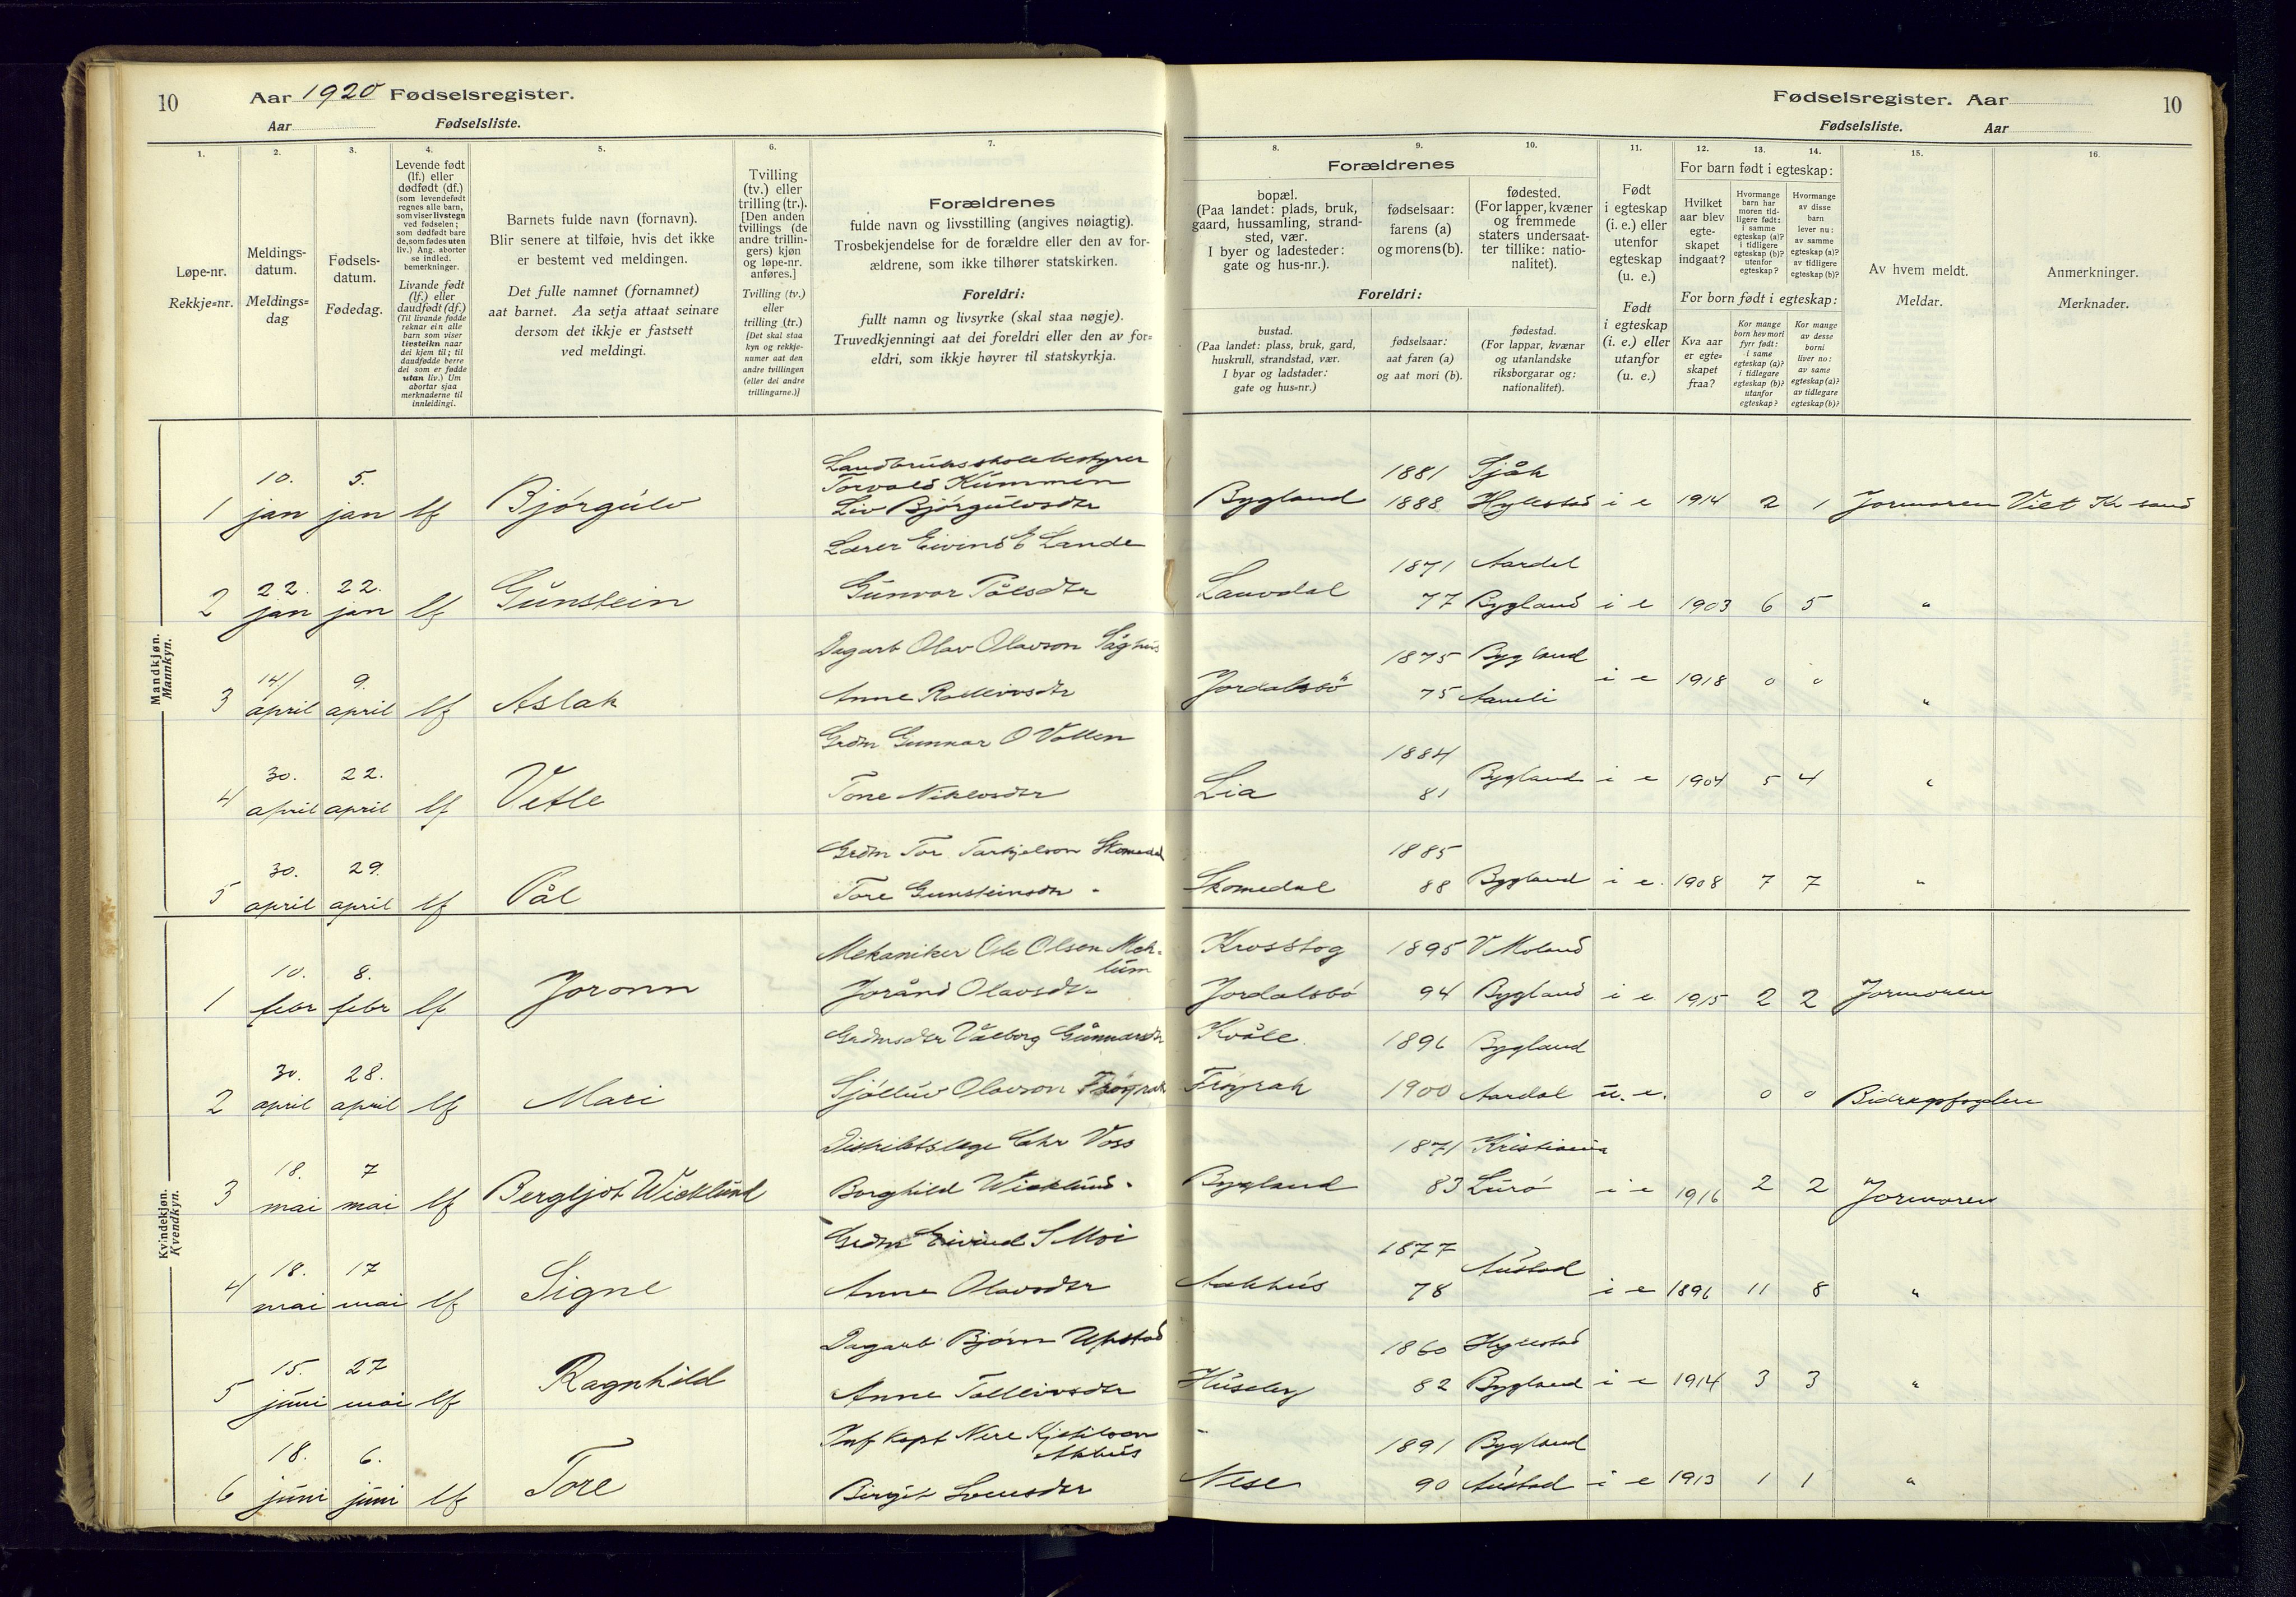 10
Aar 1920 Fødselsregister.
Aar Fødselsliste.
Fødselsregister. Aar
10
Fødselsliste. Aar
1.
Løpe-nr.
Rekkje=nr.
2.
Meldings-
datum.
Meldings=
dag
3.
Fødsels-
datum.
Fødedag.
4.
Levende født
(lf.) eller
dødfødt (df.)
(som levendefødt
regnes alle barn,
som viser livstegn
ved fødselen;
som dødfødt bare
de, som fødes uten
liv.) Ang. aborter
se indled.
bemerkninger.
Livande født
(lf.) eller
daudfødt (df.)
(Til livande fødde
reknar ein alle
barn som viser
livsteikn naar
dei kjem til; til
daudfødde berre
dei som er fødde
utan liv.) Um
abortar sjaa
merknaderne til
innleidingi.
5.
Barnets fulde navn (fornavn).
Blir senere at tilføie, hvis det ikke
er bestemt ved meldingen.
Det fulle namnet (fornamnet)
aat barnet. Aa setja attaat seinare
dersom det ikkje er fastsett
ved meldingi.
6.
Tvilling
(tv.) eller
trilling (tr.).
[Den anden
tvillings (de
andre trillin-
gers) kjøn
og løpe-nr.
anføres.]
Tvilling (tv.)
eller
trilling (tr.)
[Det skal staa
kyn og rekkje-
numer aat den
andre tvillingen
(eller dei andre
trillingarne.)]
7.
Forældrenes
fulde navn og livsstilling (angives nøiagtig).
Trosbekjendelse for de forældre eller den av for-
ældrene, som ikke tilhører statskirken.
Foreldri:
fullt namn og livsyrke (skal staa nøgje).
Truvedkjenningi aat dei foreldri eller den av for=
eldri, som ikkje høyrer til statskyrkja.
Forældrenes
8.
bopæl.
(Paa landet: plads, bruk,
gaard, hussamling, strand-
sted, vær.
I byer og ladesteder:
gate og hus-nr.).
9.
fødselsaar:
farens (a)
og morens (b).
10.
fødested.
(For lapper, kvæner
og fremmede
staters undersaat-
ter tillike: natio-
nalitet).
Foreldri:
bustad.
(Paa landet: plass, bruk, gard,
huskrull, strandstad, vær.
I byar og ladstader:
gate og hus=nr.)
fødselsaar:
aat faren (a)
og aat mori (b).
fødestad.
(For lappar, kvænar
og utanlandske
riksborgarar og:
nationalitet).
11.
Født
i egteskap
(i. e.) eller
utenfor
egteskap
(u. e.)
Født
i egteskap
(i. e.) eller
utanfor
(u. e.)
12. 13. 14.
For barn født i egteskap:
Hvilket
aar blev
egte-
skapet
indgaat?
Hvormange
barn har
moren tid-
ligere født:
i samme
egteskap (a)?
i tidligere
egteskap (b)?
utenfor
egteskap?
Hvormange
av disse
barn
lever nu:
av samme
egteskap (a)?
av tidligere
egteskap (b)?
For born født i egteskap:
Kva aar
er egte=
skapet
fraa?
Kor mange
born hev mori
fyrr født:
i same
egteskap (a)?
i tidlegare
egteskap (b)?
utanfor
egteskap?
Kor mange
av desse
borni
liver no:
av same
egteskap (a)?
av tidlegare
egteskap (b)?
15.
Av hvem meldt.
Meldar.
16.
Anmerkninger.
Merknader.
Mandkjøn.
Mannkyn.
Landbruksskolebestyrer
Torvald Kummen 1881 Sjåk
1 10. jan 5. jan lf Bjørgulv Liv Bjørgulvsdtr Bygland 1888 Hylestad i e 1914 2 1 Jormoren Viet Kr sand
Lærer Eivind E Lande 1871 Aardal
2 22. jan 22. jan lf Gunstein Gunvor Pålsdtr Lauvdal 77 Bygland i e 1903 6 5 "
Dagarb Olav Olavson Såghus 1875 Bygland
3 14/ april 9. april lf Aslak Anne Rolleivsdtr Jordalsbö 75 Aamli i e 1918 0 0 "
Grdm Gunnar O Vollen 1884
4 30. april 22. april lf Vetle Tone Niklosdtr Lia 81 Bygland i e 1904 5 4 "
Grdm Tor Tarkjelson Skomedal 1885
5 30. april 29. april lf Pål Tore Gunsteinsdtr - Skomedal 88 Bygland i e. 1908 7 7 "
Kvindekjøn.
Kvendkyn.
Mekaniker Ole Olsen Mek-
lum Krosstog 1895 V Moland
1 10. febr 8. febr lf Joronn Jorånd Olavsdtr Jordalsbö 94 Bygland i e 1915 2 2 Jormoren
Grdmsdtr Vålborg Gunnarsdtr Kvåle 1896 Bygland
2 30. april 28. april lf Mari Sjölluv Olavson Fröyrak Fröyrak 1900 Aardal u. e. 0 0 Bidragsfogden
Distriktslege Chr Voss 1871 Kristiania
3 18. mai 7 mai lf Bergljot Wicklund Borghild Wicklund - Bygland 83 Lurö i e 1916 2 2 Jormoren
Grdm Eivind S Moi 1877
4 18. mai 17 mai lf Signe Anne Olavsdtr Aakhus 78 Austad i e 1896 11 8 "
Dagarb Bjørn Upstad 1860 Hylestad
5 15. juni 27 mai lf Ragnhild Anne Tolleivsdtr Huseby 82 Bygland i e 1914 3 3 "
Inf kapt Nere Kjetilson
Akhus 1891 Bygland
6 18. juni 6. juni lf Tore Birgit Svensdtr Nese 90 Austad i e 1913 1 1 "